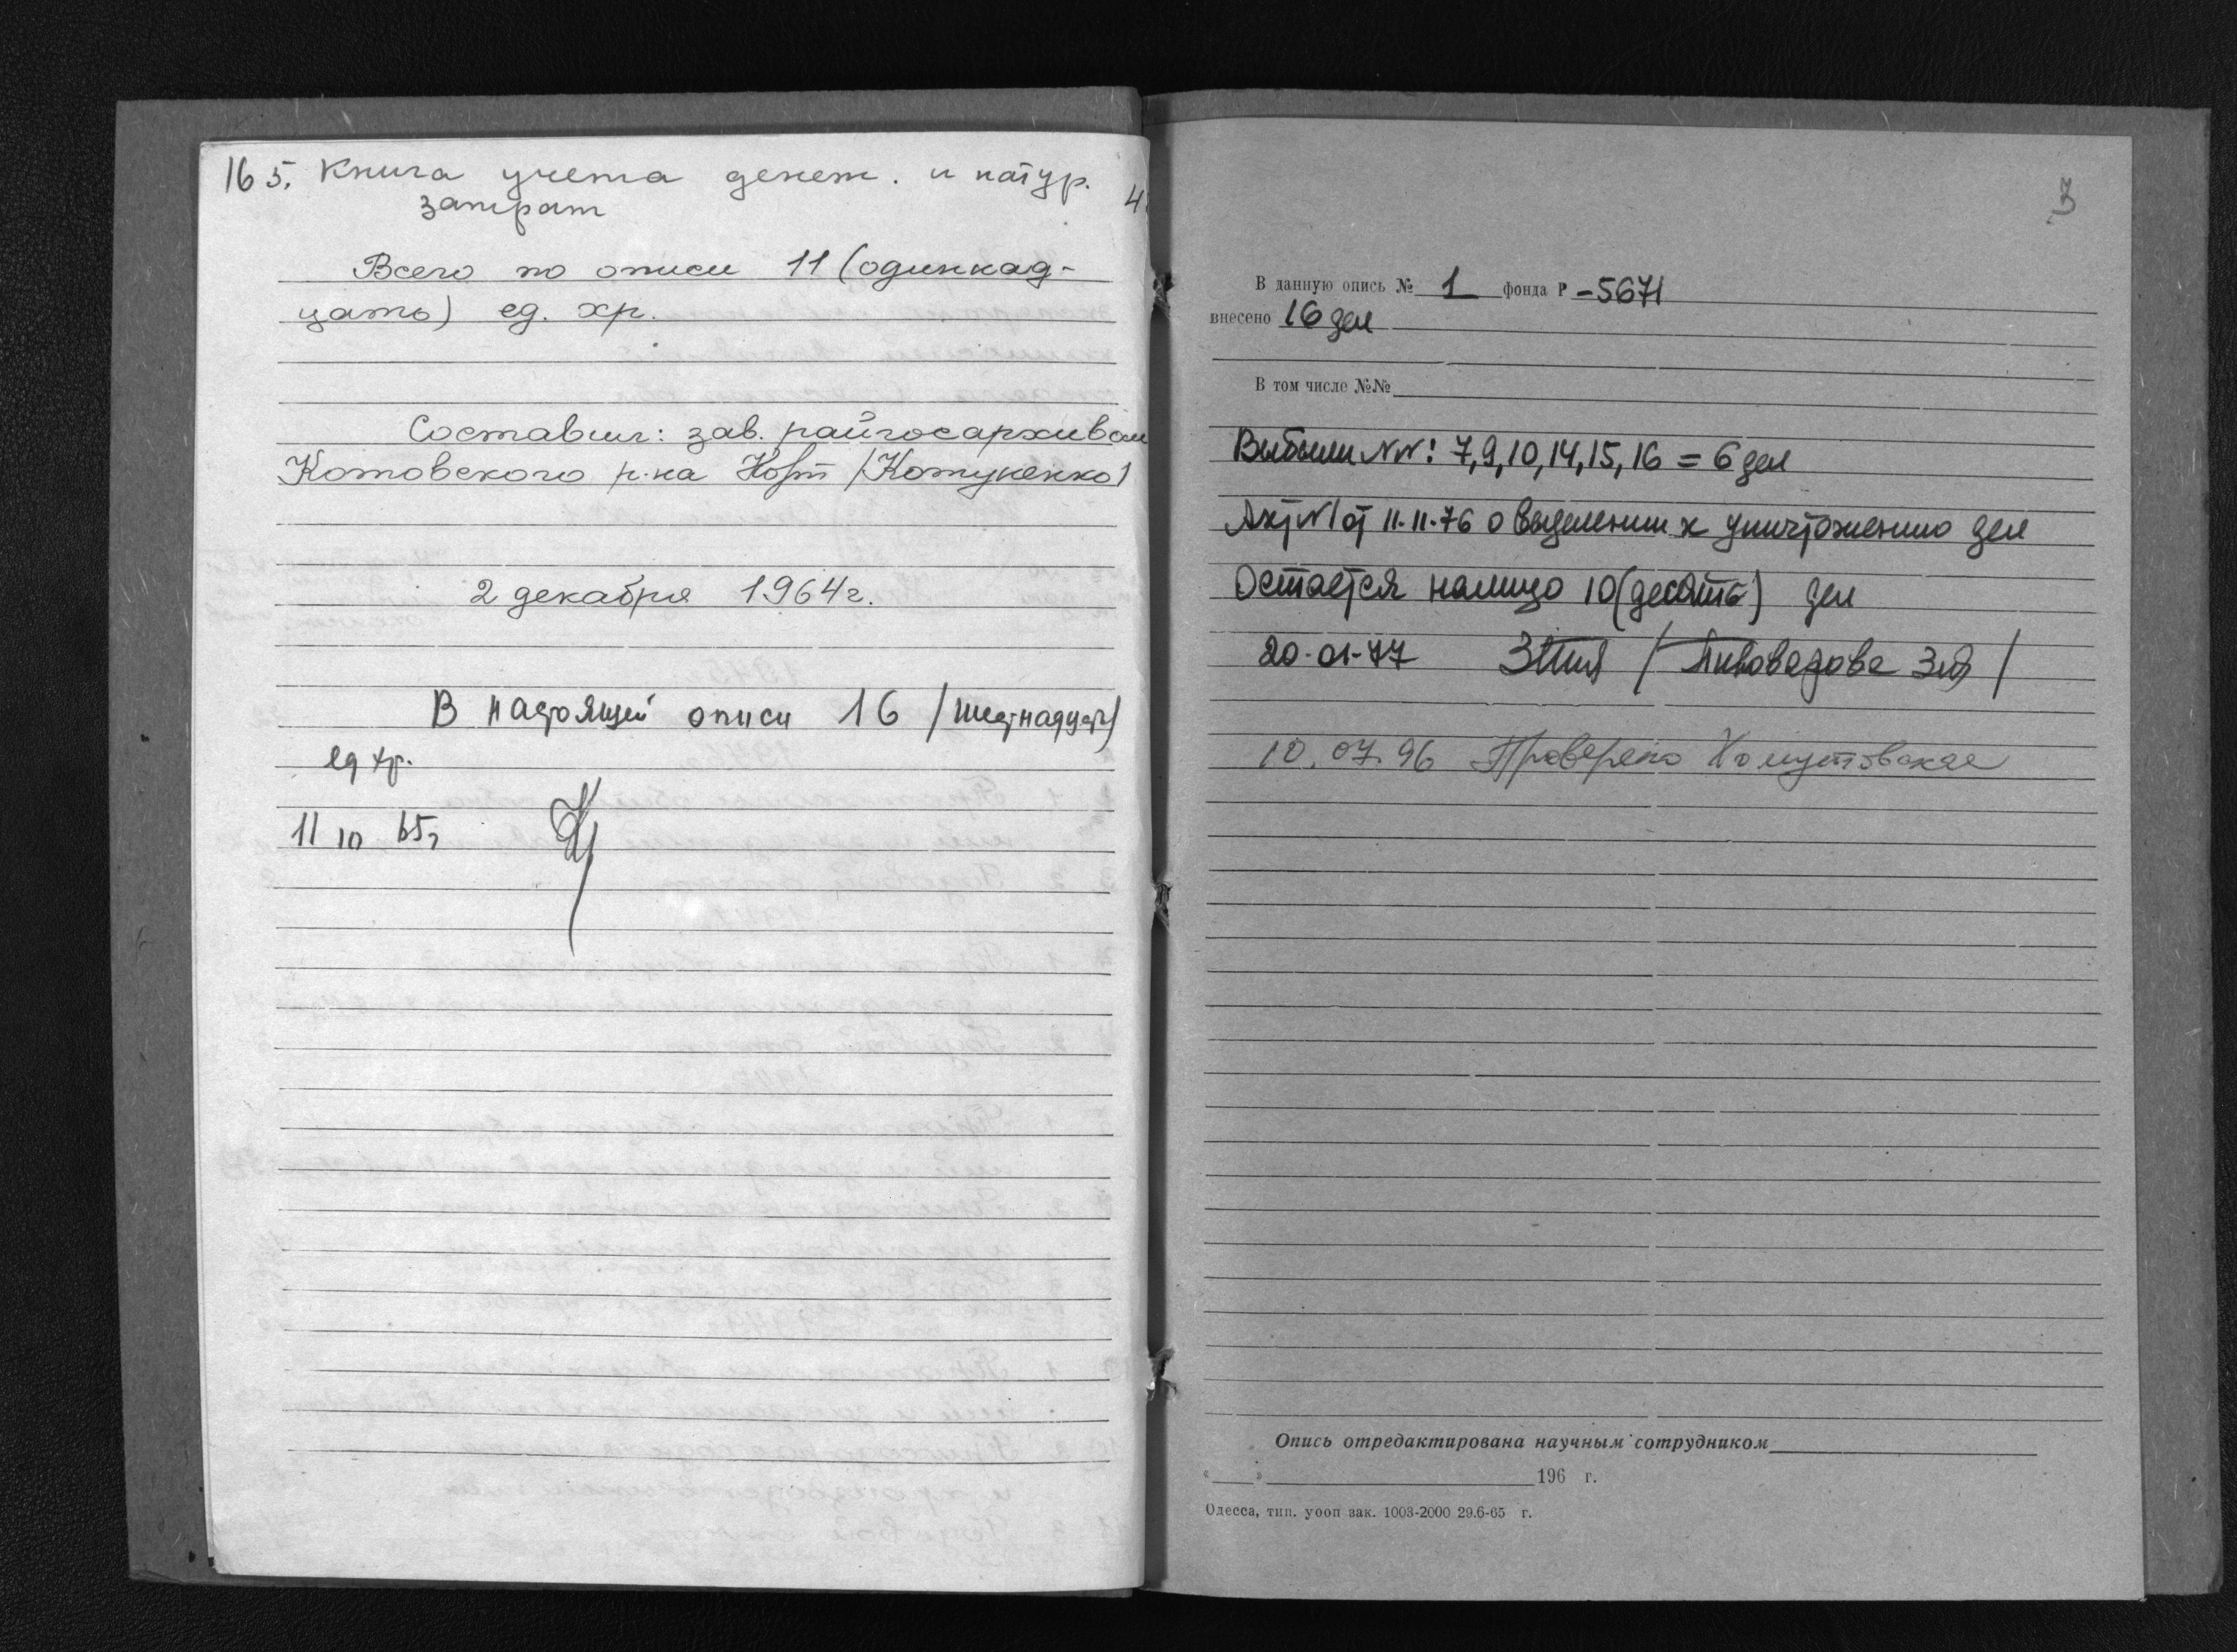 16 5. Книга учета денеж. и натур.
затрат
4
Всего по описи 11 (одинкад-
цать) ед. хр.
Составил: зав. райгосархивом
Котовского р-на /Котуненко/
2 декабря 1964г.
В настоящей описи 16 /шестнадцать/
ед хр.
11 10 65г
3
В данную опись № 1 фонда Р -5671
внесено 16 дел
В том числе №№
Выбыли NN: 7,9,10,14,15,16 = 6 дел
Акт N1 от 11-11-76 о выделении к уничтожению дел
Остается налицо 10 (десять) дел
20-01-77 / Пивоварова /
10.07.96 Проверено Хомутовская
Опись отредактирована научным сотрудником
« » 196 г.
Одесса, тип. уооп зак. 1003-2000 29.6-65 г.